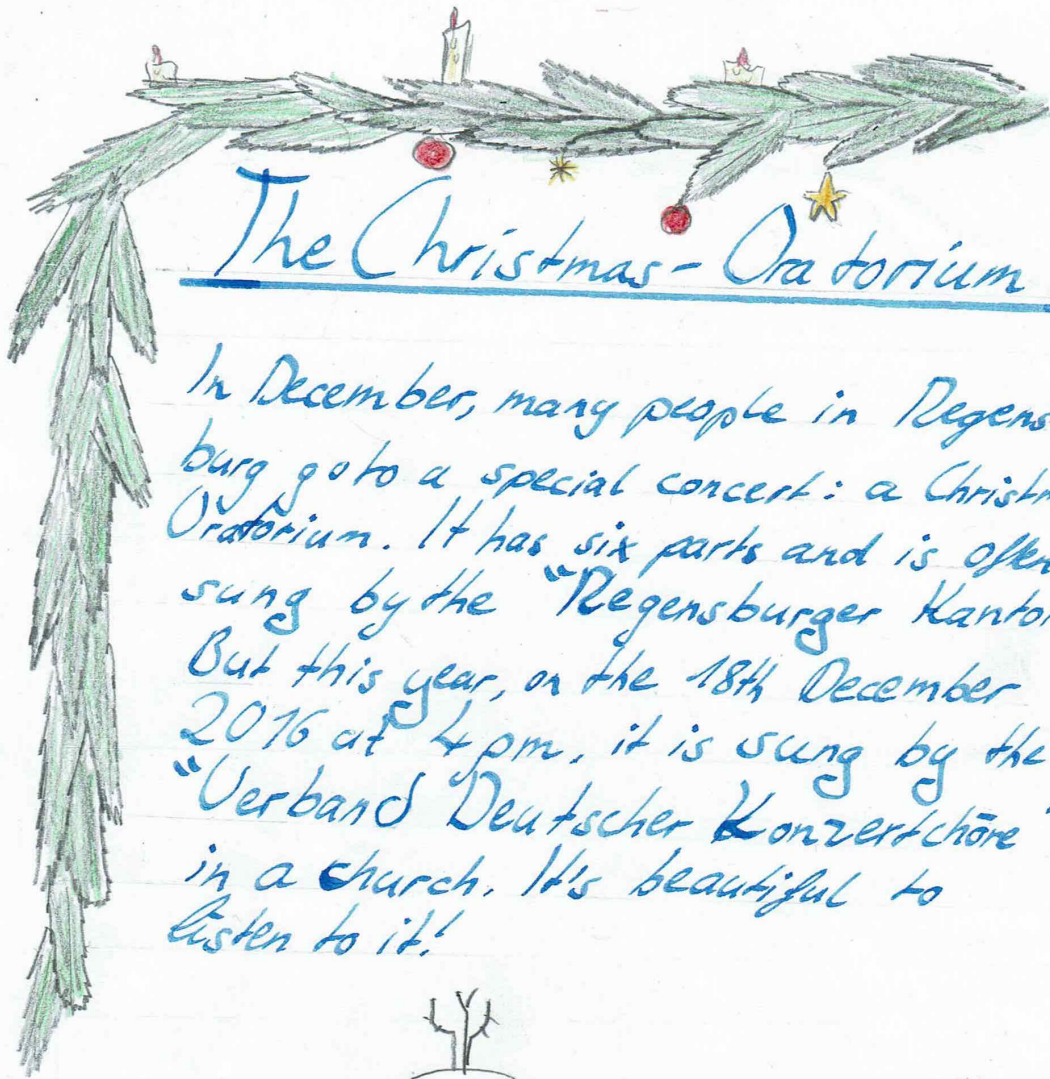 The Christmas-Oratorium
In December, many people in Regens-
burg go to a special concert: a Christm
Oratorium. It has six parts and is often
sung by the "Regensburger Kantor
But this year, on the 18th December
2016 at 4 pm, it is sung by the
"Verband Deutscher Konzertchöre"
in a church. It's beautiful to
listen to it!